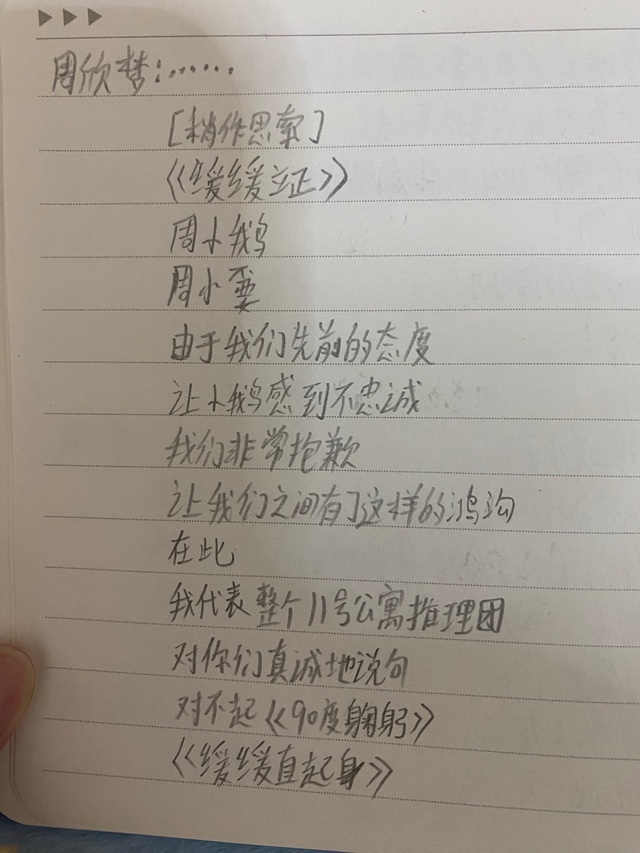 周欣梦:……
[稍作思索]
《缓缓立正》
周小鹅
周小要
由于我们先前的态度
让小鹅感到不忠诚
我们非常抱歉
让我们之间有了这样的鸿沟
在此
我代表整个11号公寓推理团
对你们真诚地说句
对不起《90度鞠躬》
《缓缓直起身》